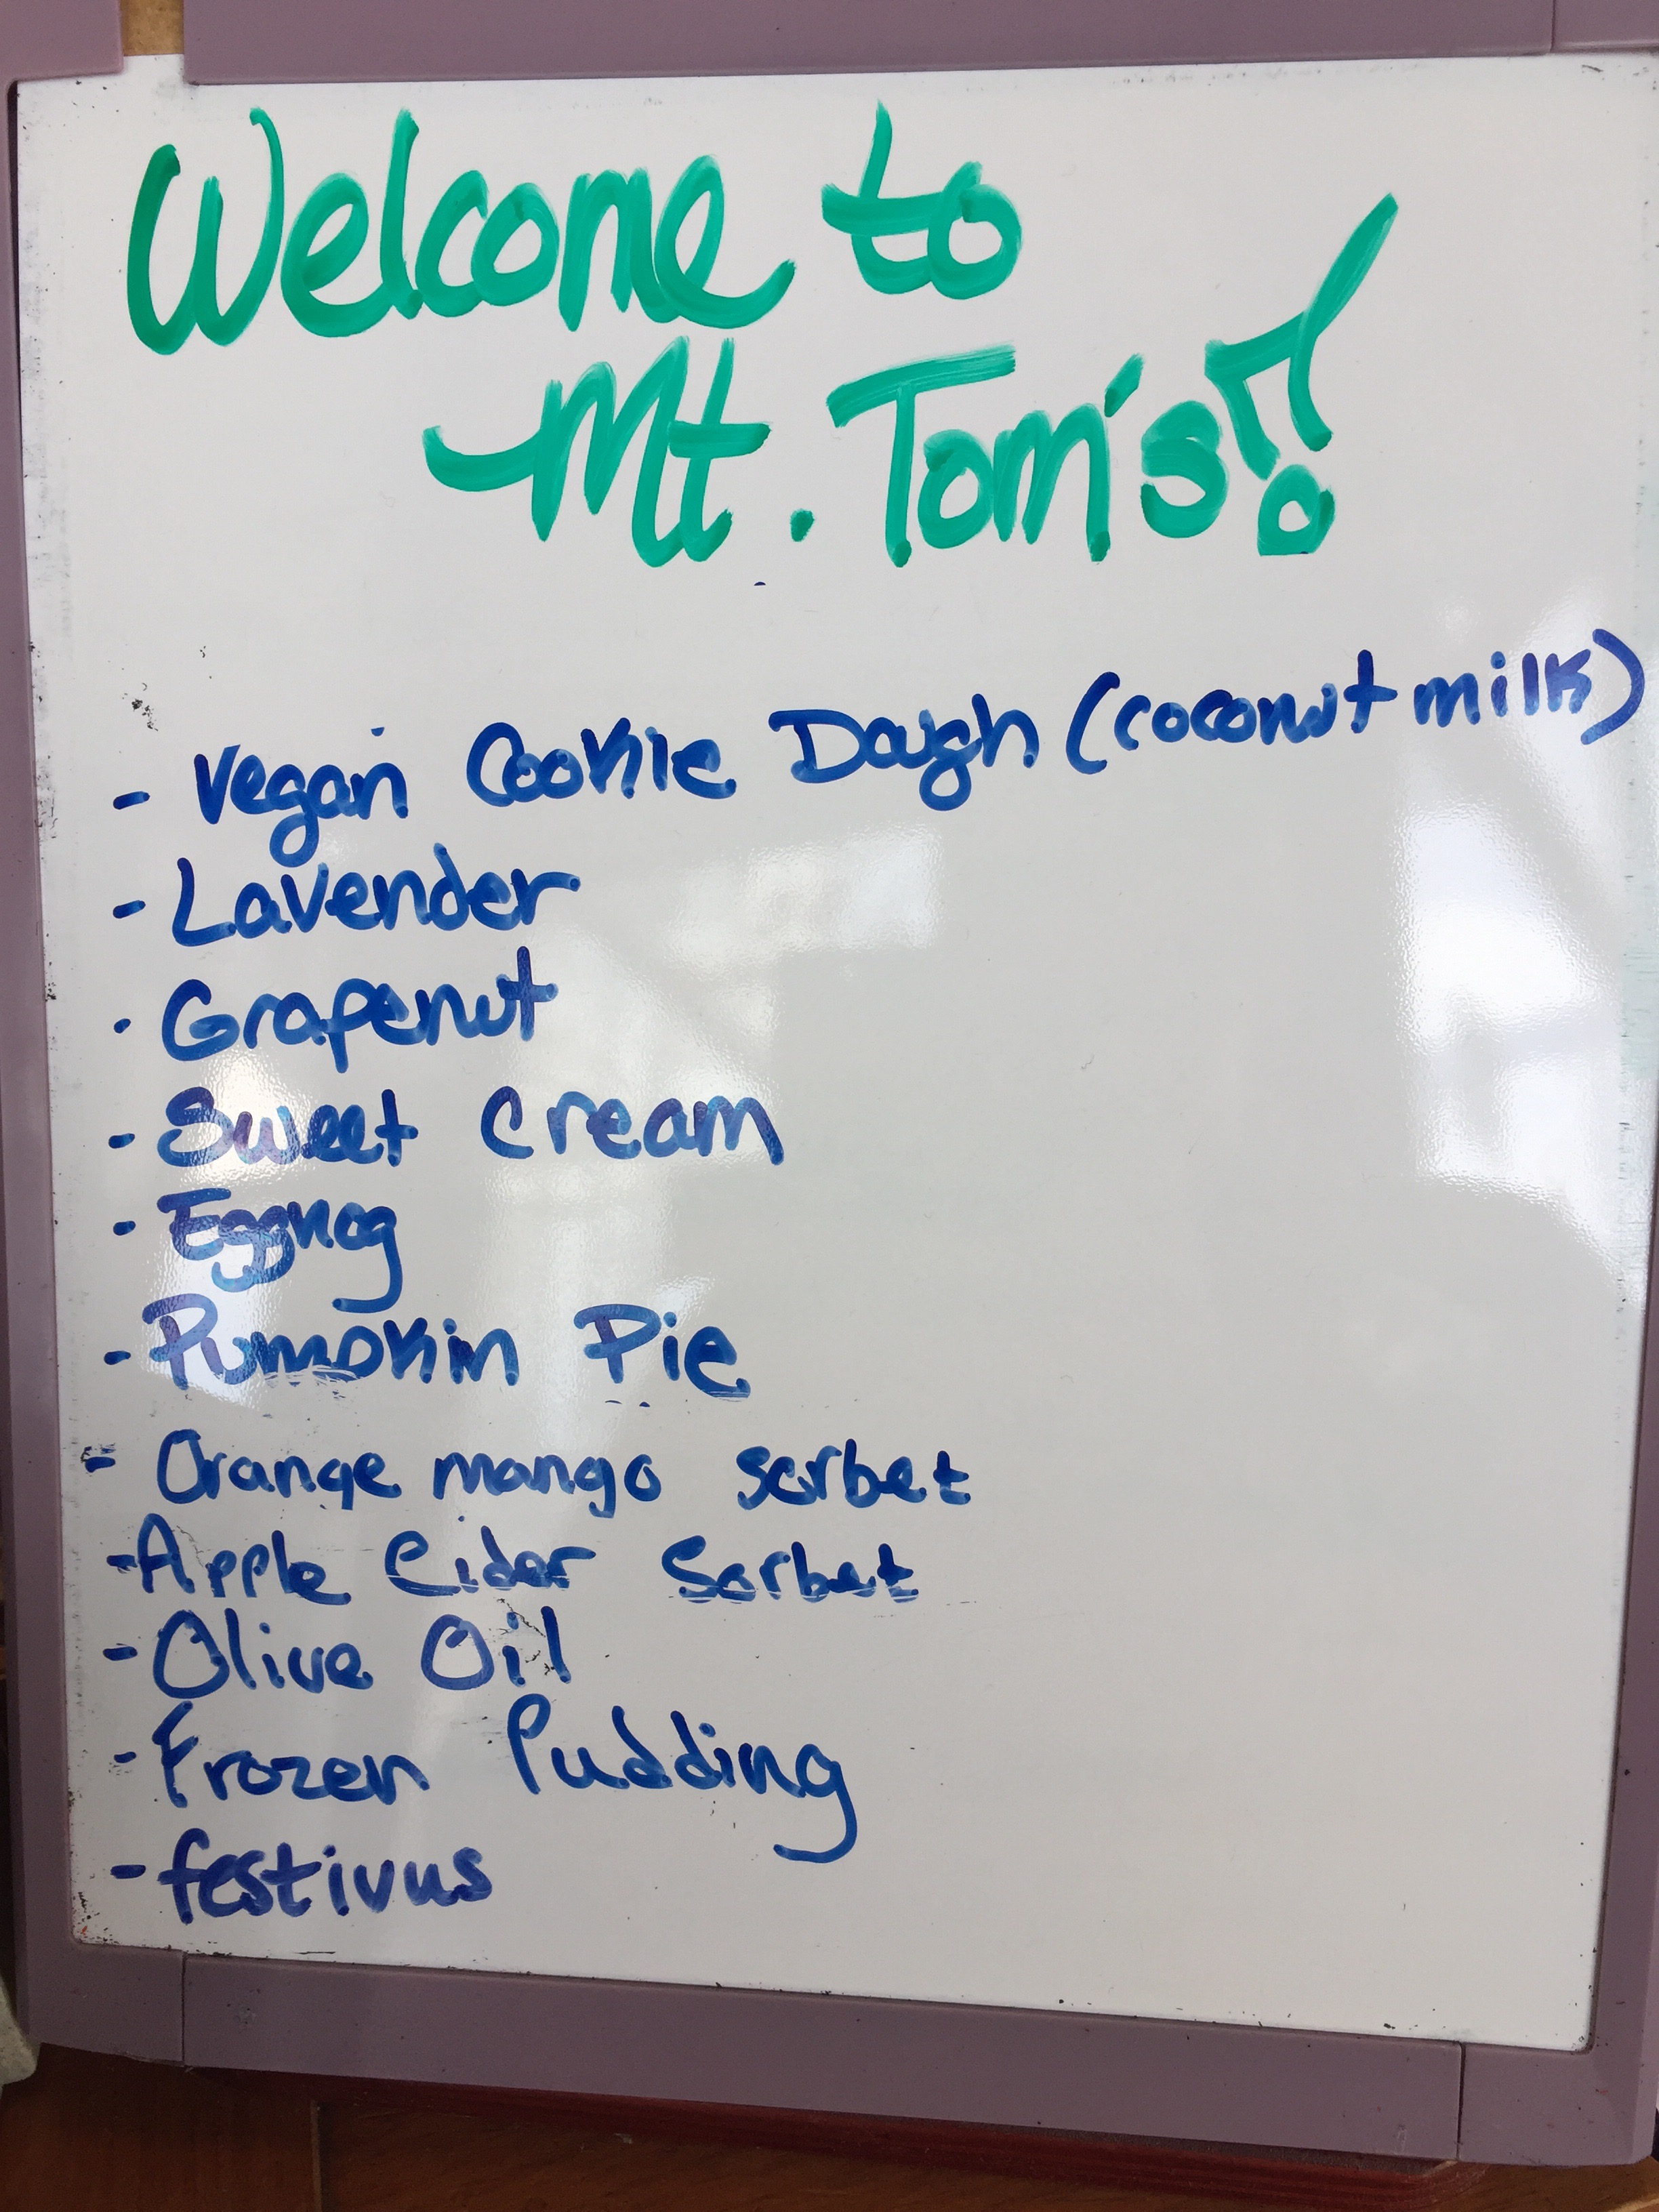 Welcome to
Mt. Tom's!
- Vegan Cookie Dough (coconut milk)
- Lavender
- Grapenut
- Sweet Cream
- Eggnog
- Pumpkin Pie
- Orange mango sorbet
- Apple Cider Sorbet
- Olive Oil
- Frozen Pudding
- festivus